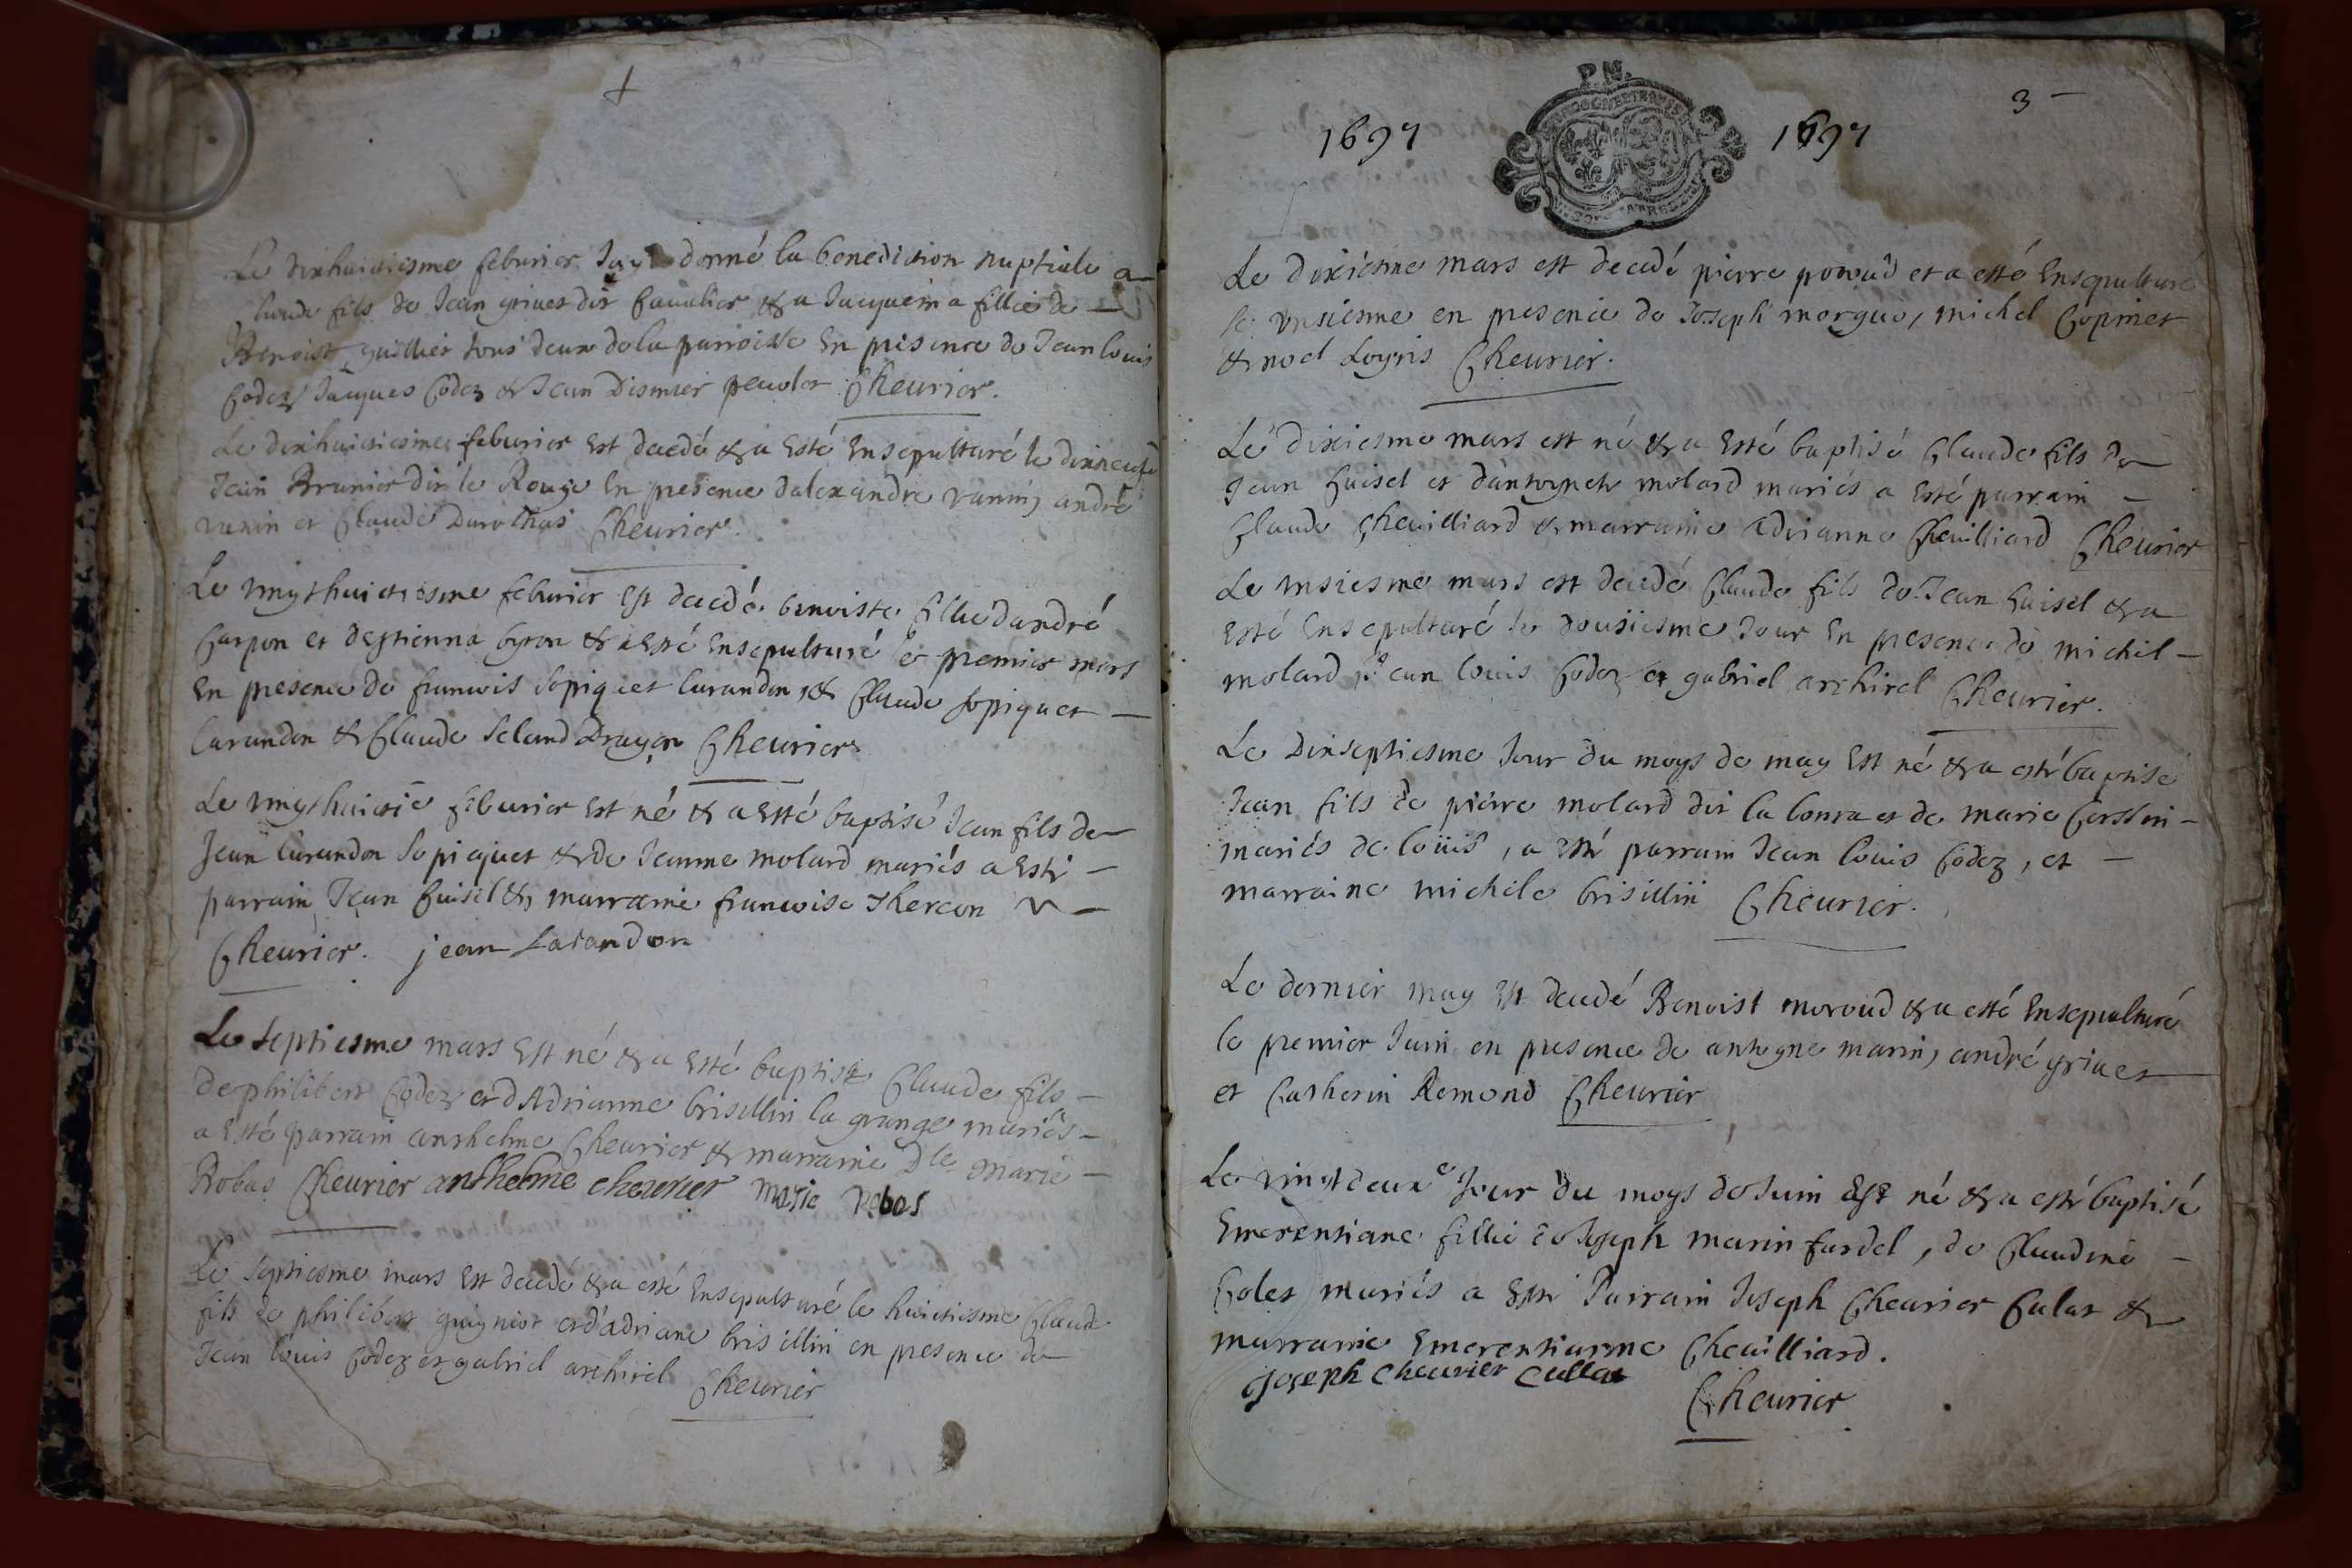 Le dixhuictiesme feburier Jay donné la benediction nuptiale a
Claude fils de Jean grivet dit Cavalier & a Jacquema fillie de
Benoist guillier tous deux de la parroisse En presence de Jean louis
Codez Jacques Codez & Jean Dismier Cheurier.
Le dixhuictiesme feburier Est decedé & a Esté Ensepulturé le dixneufe
Jean Brunier dit le Rouge En presence dalexandre vanin, andré
vanin et Claude Cheurier.
Le vingthuictiesme feburier Est decedé benoiste fillie dandré
Carpon et destienna & a Esté Ensepulturé le premier mars
En presence de francois Sopiquet Larandon, & Claude Sopiquet
Larandon & Claude Cheurier
Le vingthuictie feburier Est né & a Esté baptisé Jean fils de
Jean Larandon Sopiquet & de Jeanne molard mariés a Esté
parrain Jean Guisel & marraine francoise
Cheurier. jean Larandon
Le Septiesme mars Est né & a Esté baptisé Claude fils
de philibert Codez et dAdrianne brisillin la grange mariés
a Esté parrain anthelme Cheurier & marraine Dle marie
Robas Cheurier anthelme cheurier marie Robas
Le Septiesme mars Est decedé & a esté Ensepulturé le huictiesme Claude
fils de philibert et dadriane brisillin en presence de
Jean louis Codez et gabriel archirel Cheurier
3
1697 P.M. 1697
Le dixiesme mars est decedé pierre et a esté Ensepulturé
le unsiesme en presence de Joseph morgue, michel Copinet
& noel Loyris Cheurier.
Le dixiesme mars est né & a Esté baptisé Claude fils de
Jean Guisel et dantoynete molard mariés a Esté parrain
Claude Cheuilliard & marraine Adrianne Cheuilliard Cheurier
Le unsiesme mars est decedé Claude fils de Jean Guisel & a
Esté Ensepulturé le dousiesme Jour En presence de michel
molard, Jean louis Codez et gabriel archirel Cheurier.
Le Dixseptiesme Jour du moys de may Est né & a esté baptisé
Jean fils de pierre molard dit la et de marie
mariés de loüis, a Esté parrain Jean louis Codez, et
marraine michele brisillin Cheurier.
Le dernier may Est decedé Benoist moroud & a esté Ensepulturé
le premier Juin en presence de antoyne marin, andré grivet
et Catherin Remond Cheurier
Le vingtdeuxe Jour du moys de Juin Est né & a esté baptisé
Emerentiane fillie de Joseph marin fardel, de Claudine
Colet mariés a Esté Parrain Joseph Cheurier Culat &
marraine Emerentianne Cheuilliard.
joseph cheurier cullat
Cheurier